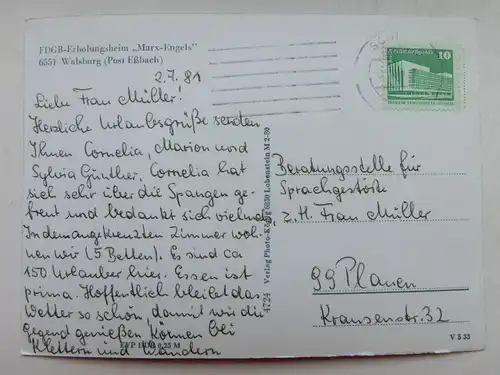 FDGB-Erholungsheim „Marx-Engels"
6551 Walsburg (Post Eßbach)
2.7.81
Liebe Frau Müller!
Herzliche Urlaubsgrüße senden
Ihnen Cornelia, Marion und
Sylvia Günther. Cornelia hat
sich sehr über die Spangen ge-
freut und bedankt sich vielmals
In dem angekreuzten Zimmer woh-
nen wir (5 Betten). Es sind ca
150 Urlauber hier. Essen ist
prima. Hoffentlich bleibt das
Wetter so schön, damit wir die
Gegend genießen können bei
Klettern und Wandern
EVP 0,25 M
4724 Verlag Photo-König 6850 Lobenstein M 2-80
10
Beratungsstelle für
Sprachgestörte
z. H. Frau Müller
99 Plauen
Kransenstr. 32
V 5 33